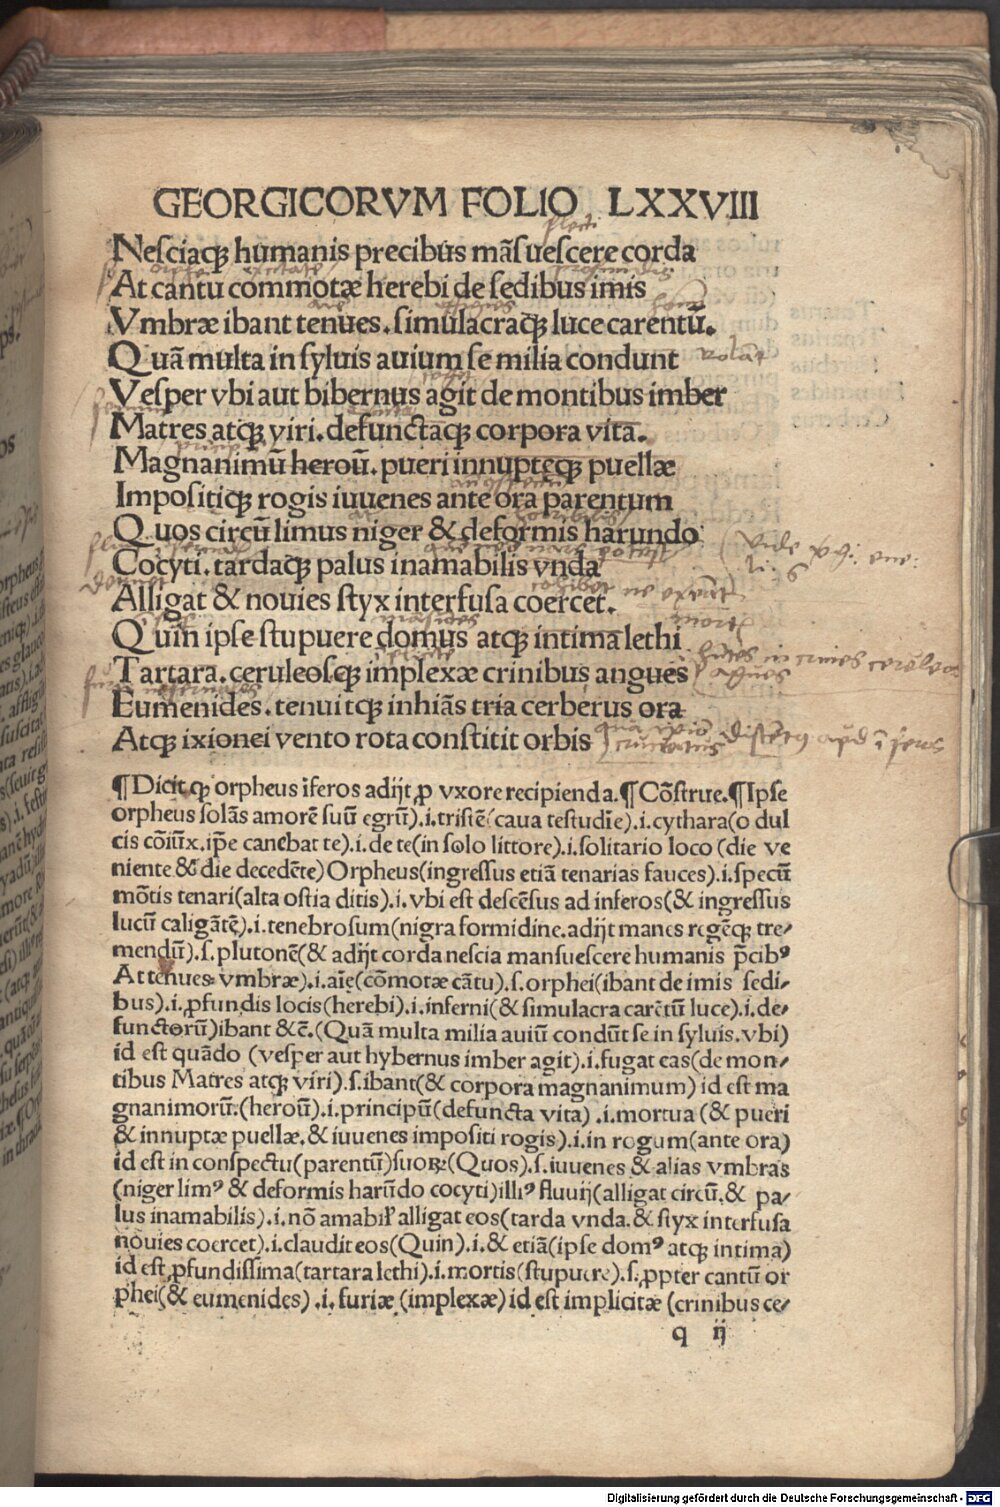 GEORGICORVM FOLIO LXXVIII
Nesciaqꝫ humanis precibus mãsuescere corda
At cantu commotæ herebi de sedibus imis
Vmbræ ibant tenues. simulacraqꝫ luce carentũ.
Quã multa in syluis auium se milia condunt
Vesper vbi aut hibernus agit de montibus imber
Matres atqꝫ viri. defunctaqꝫ corpora vita.
Magnanimũ heroũ. pueri innupteqꝫ puellæ
Impositiqꝫ rogis iuuenes ante ora parentum
Quos circũ limus niger & deformis harundo
Cocyti. tardaqꝫ palus inamabilis vnda
Alligat & nouies styx interfusa coercet.
Quin ipse stupuere domus atqꝫ intima lethi
Tartara. ceruleosqꝫ implexæ crinibus angues
Eumenides. tenuitqꝫ inhiãs tria cerberus ora
Atqꝫ ixionei vento rota constitit orbis
¶Dicit qꝫ orpheus ĩferos adijt ꝓ vxore recipienda. ¶Cõstrue. ¶Ipse
orpheus solãs amorẽ suũ egrũ).i.tristẽ(caua testudĩe).i.cythara(o dul
cis cõiũx.ip̃e canebat te).i.de te(in solo littore).i.solitario loco (die ve
niente & die decedẽte) Orpheus(ingressus etiã tenarias fauces).i.specũ
mõtis tenari(alta ostia ditis).i.vbi est descẽsus ad inferos(& ingressus
lucũ caligãtẽ).i.tenebrosum(nigra formidine.adijt manes regẽqꝫ tre⸗
mendũ).s.plutonẽ(& adijt corda nescia mansuescere humanis p̃cibꝰ
At tenues vmbræ).i.aĩe(cõmotæ cãtu).s.orphei(ibant de imis sedi⸗
bus).i.ꝓfundis locis(herebi).i.inferni(& simulacra carẽtũ luce).i.de⸗
functorũ)ibant &c̃.(Quã multa milia auiũ condũt se in syluis.vbi)
id est quãdo (vesper aut hybernus imber agit).i.fugat eas(de mon⸗
tibus Matres atqꝫ viri).s.ibant(& corpora magnanimum) id est ma
gnanimorũ.(heroũ).i.principũ(defuncta vita) .i.mortua (& pueri
& innuptæ puellæ.& iuuenes impositi rogis).i.in rogum(ante ora)
id est in conspectu(parentũ)suoꝝ(Quos).s.iuuenes & alias vmbras
(niger limꝰ & deformis harũdo cocyti)illiꝰ fluuij(alligat circũ.& pa⸗
lus inamabilis).i.nõ amabił alligat eos(tarda vnda.& styx interfusa
nouies coercet).i.claudit eos(Quin).i.& etiã(ipse domꝰ atqꝫ intima)
id est ꝓfundissima(tartara lethi).i.mortis(stupuere).s.ꝓpter cantũ or
phei(& eumenides) .i. furiæ (implexæ) id est implicitæ (crinibus ce⸗
q ij
Digitalisierung gefördert durch die Deutsche Forschungsgemeinschaft - DFG